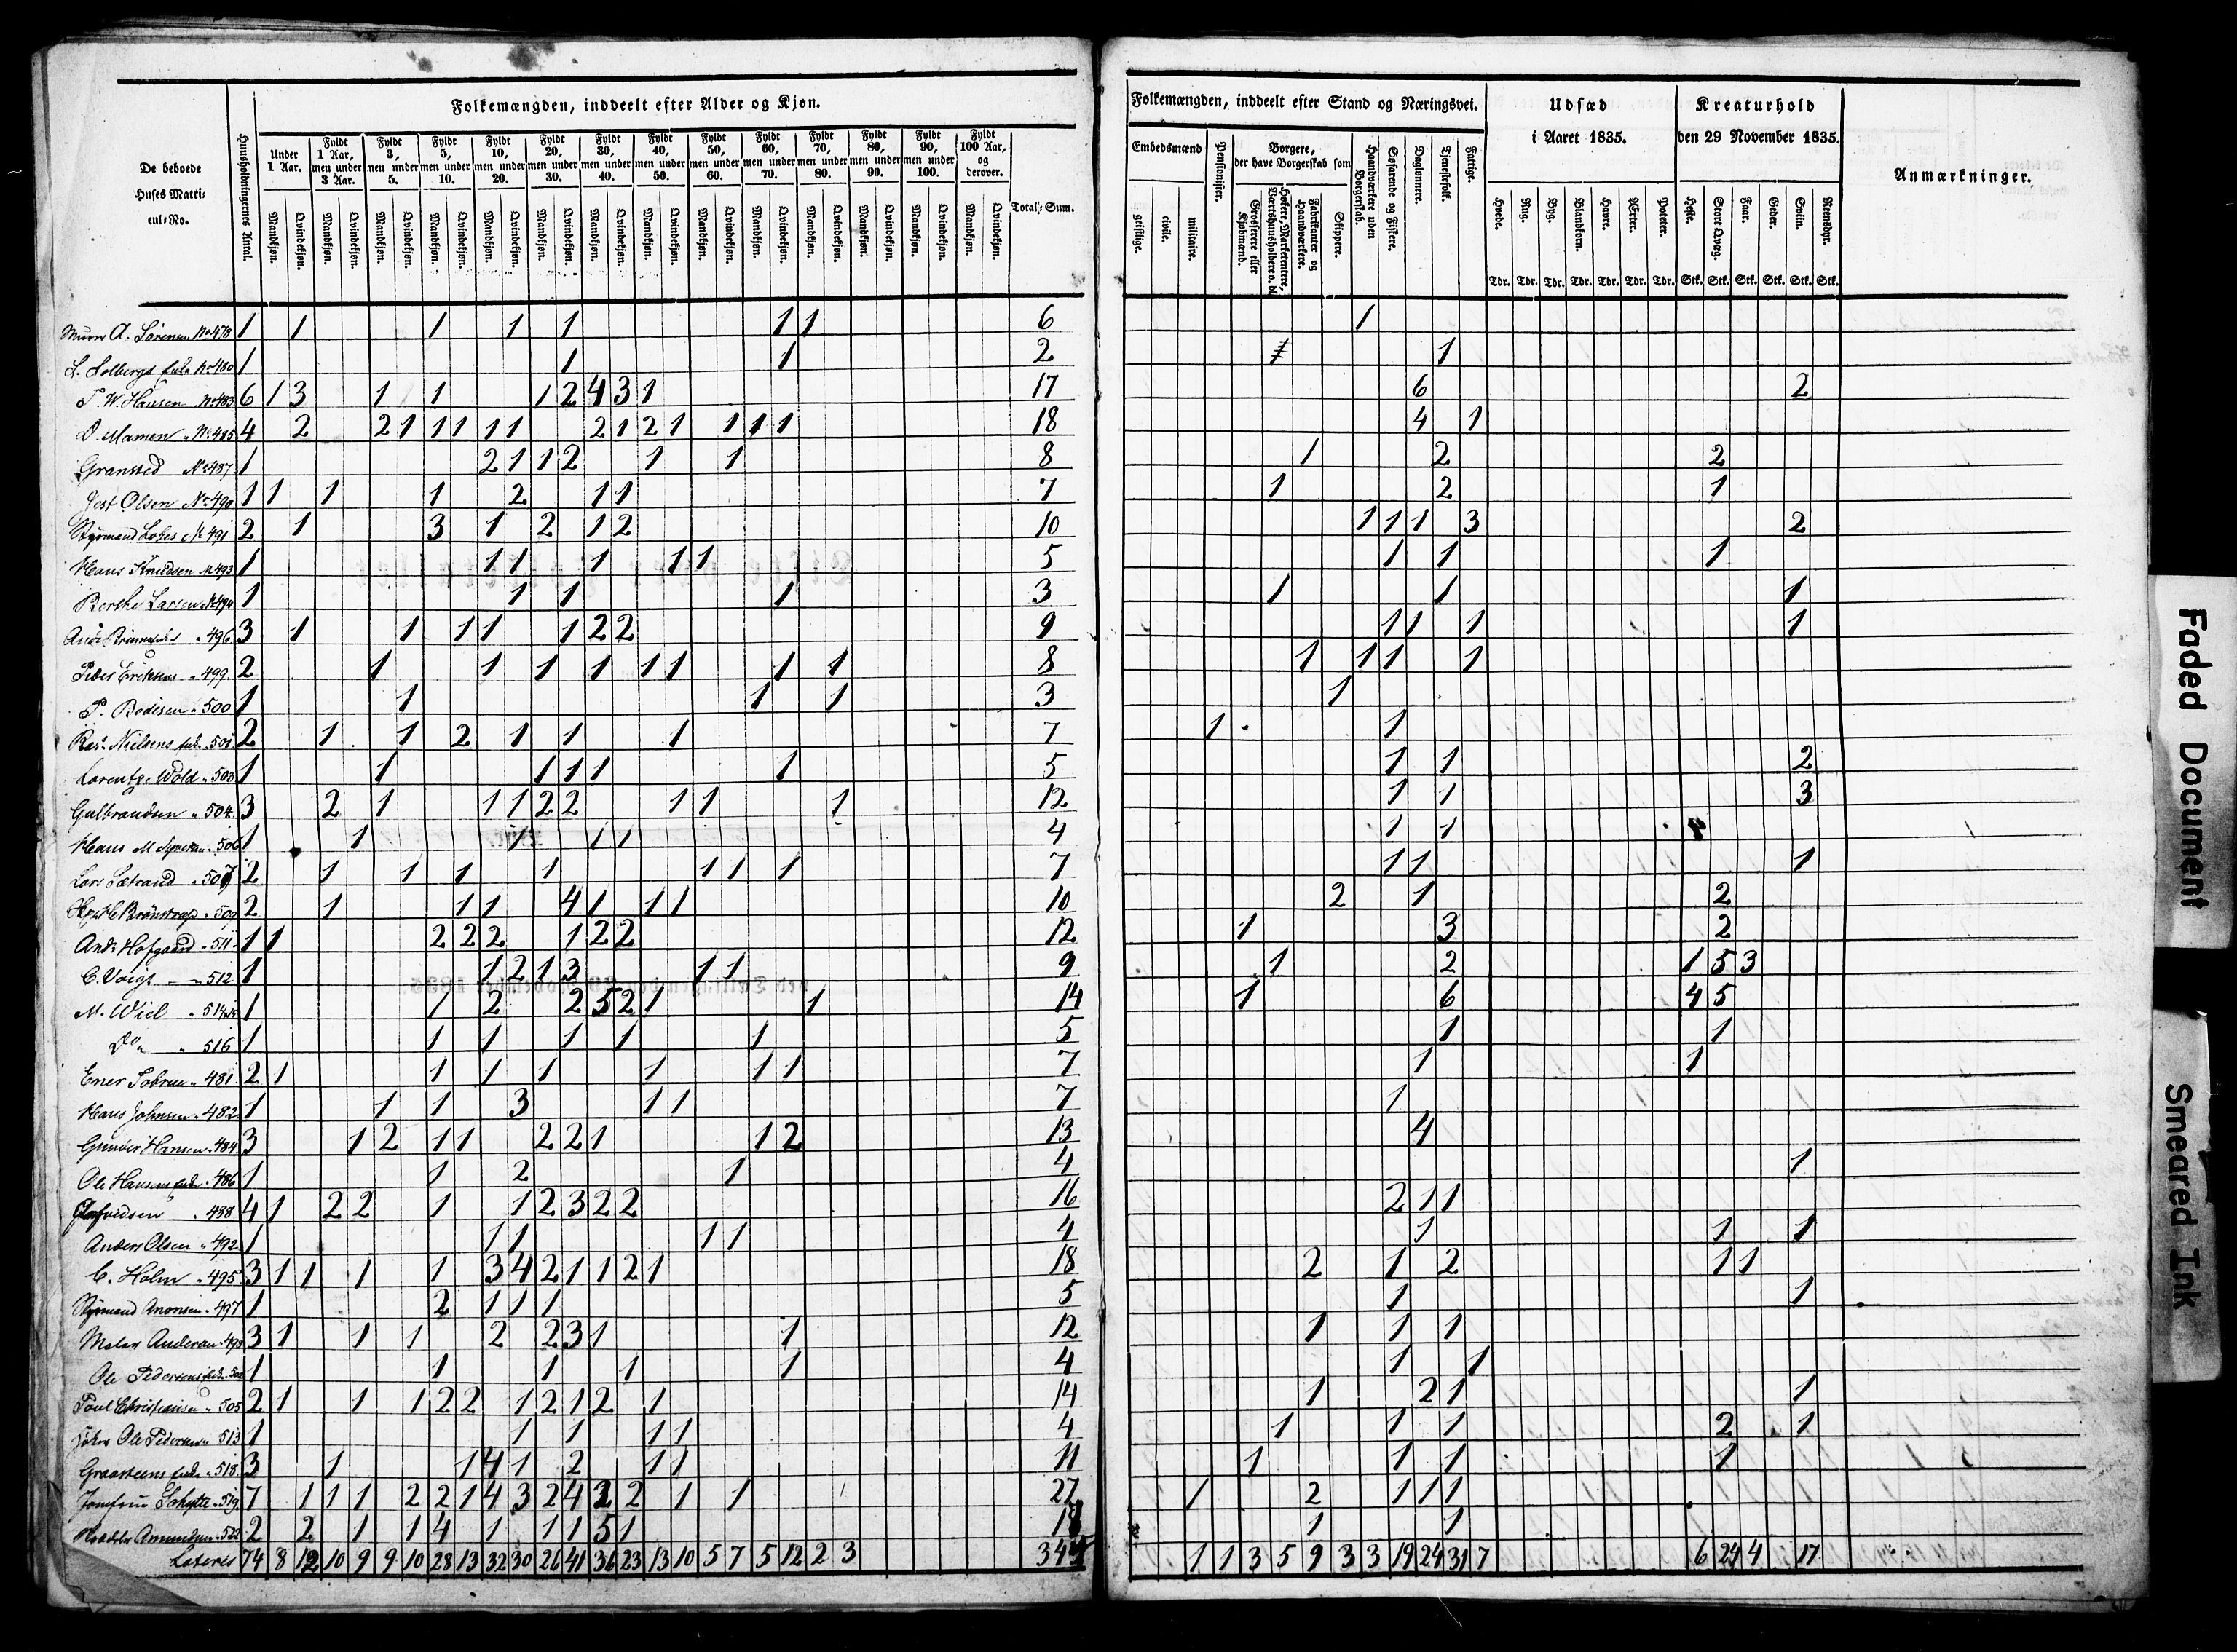 Folkemængden, inddeelt efter Alder og Kjøn.
De beboede Huses Matricul-No.
Huusholdningernes Antal.
Under 1 Aar.
Fyldt 1 Aar, men under 3 Aar.
Fyldt 3, men under 5.
Fyldt 5, men under 10.
Fyldt 10, men under 20.
Fyldt 20, men under 30.
Fyldt 30, men under 40.
Fyldt 40, men under 50.
Fyldt 50, men under 60.
Fyldt 60, men under 70.
Fyldt 70, men under 80.
Fyldt 80, men under 90.
Fyldt 90, men under 100.
Fyldt 100 Aar, og derover.
Mandkjøn. Qvindekjøn.
Total-Sum.
Folkemængden, inddeelt efter Stand og Næringsvei.
Embedsmænd
geistlige. civile. militaire.
Pensionister.
Borgere, der have Borgerskab som
Grosserere eller Kjøbmænd.
Høkere, Marketentere, Værtshuusholdere o. dl.
Fabrikanter og Haandværkere.
Skippere.
Haandværkere uden Borgerskab.
Søfarende og Fiskere.
Daglønnere.
Tjenestefolk.
Fattige.
Udsæd i Aaret 1835.
Hvede. Rug. Byg. Blandkorn. Havre. Ærter. Poteter.
Tdr. Tdr. Tdr. Tdr. Tdr. Tdr. Tdr.
Kreaturhold den 29 November 1835.
Heste. Stort Qvæg. Faar. Geder. Sviin. Reensdyr.
Stk. Stk. Stk. Stk. Stk. Stk.
Anmærkninger.
A. Sørensen No 478 1 1 1 1 1 1 1 6 1
No 480 1 1 1 2 1
T. W. Hansen No 483 6 1 3 1 1 1 2 4 3 1 17 6 2
No 485 4 2 2 1 1 1 1 1 2 1 2 1 1 1 1 18 4 1
Gransted No 487 1 2 1 1 2 1 1 8 1 2 2
Olsen No 490 1 1 1 1 2 1 1 7 1 2 1
Styrmand No 491 2 1 3 1 2 1 2 10 1 1 1 3 2
Hans Knudsen No 493 1 1 1 1 1 1 5 1 1 1
Berthe Larsen No 494 1 1 1 1 3 1 1 1
496 3 1 1 1 1 1 2 2 9 1 1 1 1
Peder Eriksens 499 2 1 1 1 1 1 1 1 1 8 1 1 1 1
P. Bodesen 500 1 1 1 1 3 1
Nielsens 501 2 1 1 2 1 1 1 7 1 1
Lorentz Wold 503 1 1 1 1 1 1 5 1 1 2
Gulbrandsen 504 3 2 1 1 1 2 2 1 1 1 12 1 1 3
Hans M 506 1 1 1 1 1 4 1 1
Lars 507 2 1 1 1 1 1 1 1 7 1 1 1
509 2 1 1 1 4 1 1 1 10 2 1 2
Ands Hofgaard 511 1 1 2 2 2 1 2 2 12 1 3 2
C. Voigt 512 1 1 2 1 3 1 1 9 1 2 1 5 3
M. Wiel 514 1 1 2 2 5 2 1 1 14 1 6 4 5
Do 516 1 1 1 1 1 1 5 1 1
Ener 481 2 1 1 1 1 1 1 1 7 1 1
Hans Johnsen 482 1 1 1 3 1 1 7 1
Gunder Hansen 484 3 1 2 1 1 2 2 1 1 2 13 4
Ole Hansens 486 1 1 2 1 4 1
488 4 1 2 2 1 1 2 3 2 2 16 2 1 1
Anders Olsen 492 1 1 1 1 1 4 1 1 1
C. Holm 495 3 1 1 1 1 3 4 2 1 1 2 1 18 2 1 2 1 1
Styrmand 497 1 2 1 1 1 5 1 1
Maler Andersen 498 3 1 1 1 2 2 3 1 1 12 1 1 1
Ole Pedersens 502 1 1 1 1 1 4 1 1
Poul Christiansen 505 2 1 1 1 2 2 1 2 1 2 1 14 1 2 1 1
Ole Pedersen 513 1 1 1 1 1 4 1 1 1 2 1
Graasteens 518 3 1 1 4 1 2 1 1 11 1 1 1 1
Jomfru Schytte 519 7 1 1 1 2 2 1 4 3 2 4 2 2 1 1 27 1 2 1 1 1
Amundsen 522 2 2 1 1 4 1 1 1 5 1 1 1
Lateris 74 8 12 10 9 9 10 28 13 32 30 26 41 36 23 13 10 5 7 5 12 2 3 1 1 3 5 9 3 3 19 24 31 7 6 24 4 17
Faded Document
Smeared Ink